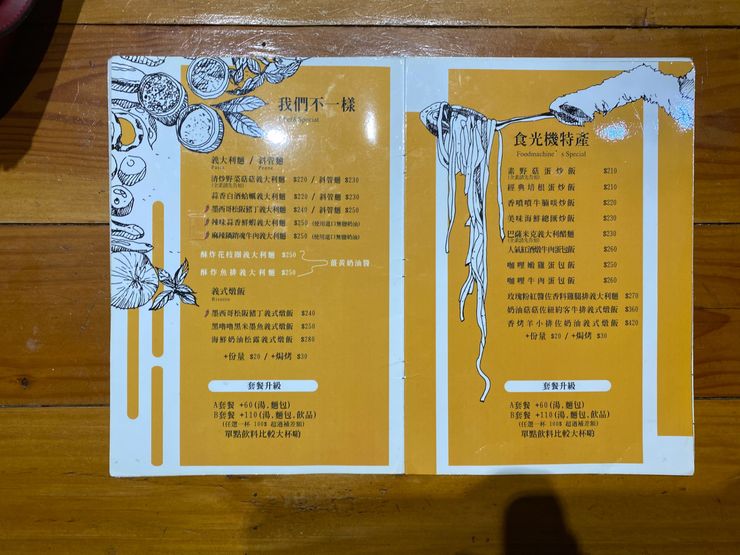 我們不一樣
Chef's Special
義大利麵 / 斜管麵
Pasta Penne
清炒野菜菇菇義大利麵 $220 / 斜管麵 $230
(全素請先告知)
蒜香白酒蛤蠣義大利麵 $220 / 斜管麵 $230
墨西哥松阪豬丁義大利麵 $240 / 斜管麵 $250
辣味蒜香鮮蝦義大利麵 $250 (使用進口無鹽奶油)
麻辣鍋銷魂牛肉義大利麵 $250 (使用進口無鹽奶油)
酥炸花枝圈義大利麵 $250
薑黃奶油醬
酥炸魚排義大利麵 $250
義式燉飯
Risotto
墨西哥松阪豬丁義式燉飯 $240
黑嚕嚕黑米墨魚義式燉飯 $250
海鮮奶油松露義式燉飯 $280
+份量 $20 / +焗烤 $30
套餐升級
A套餐 +60(湯,麵包)
B套餐 +110(湯,麵包,飲品)
(任選一杯 100$ 超過補差額)
單點飲料比較大杯喲
食光機特產
Foodmachine's Special
素野菇蛋炒飯 $210
(全素請先告知)
經典培根蛋炒飯 $210
香噴噴牛腩啖炒飯 $220
美味海鮮總匯炒飯 $220
巴薩米克義大利醋麵 $230
(全素請先告知)
人氣紅酒燉牛肉蛋包飯 $260
咖哩嫩雞蛋包飯 $250
咖哩牛肉蛋包飯 $260
玫瑰粉紅醬佐香料雞腿排義大利麵 $270
奶油菇菇佐紐約客牛排義式燉飯 $360
香烤羊小排佐奶油義式燉飯 $420
+份量 $20 / +焗烤 $30
套餐升級
A套餐 +60(湯,麵包)
B套餐 +110(湯,麵包,飲品)
(任選一杯 100$ 超過補差額)
單點飲料比較大杯喲